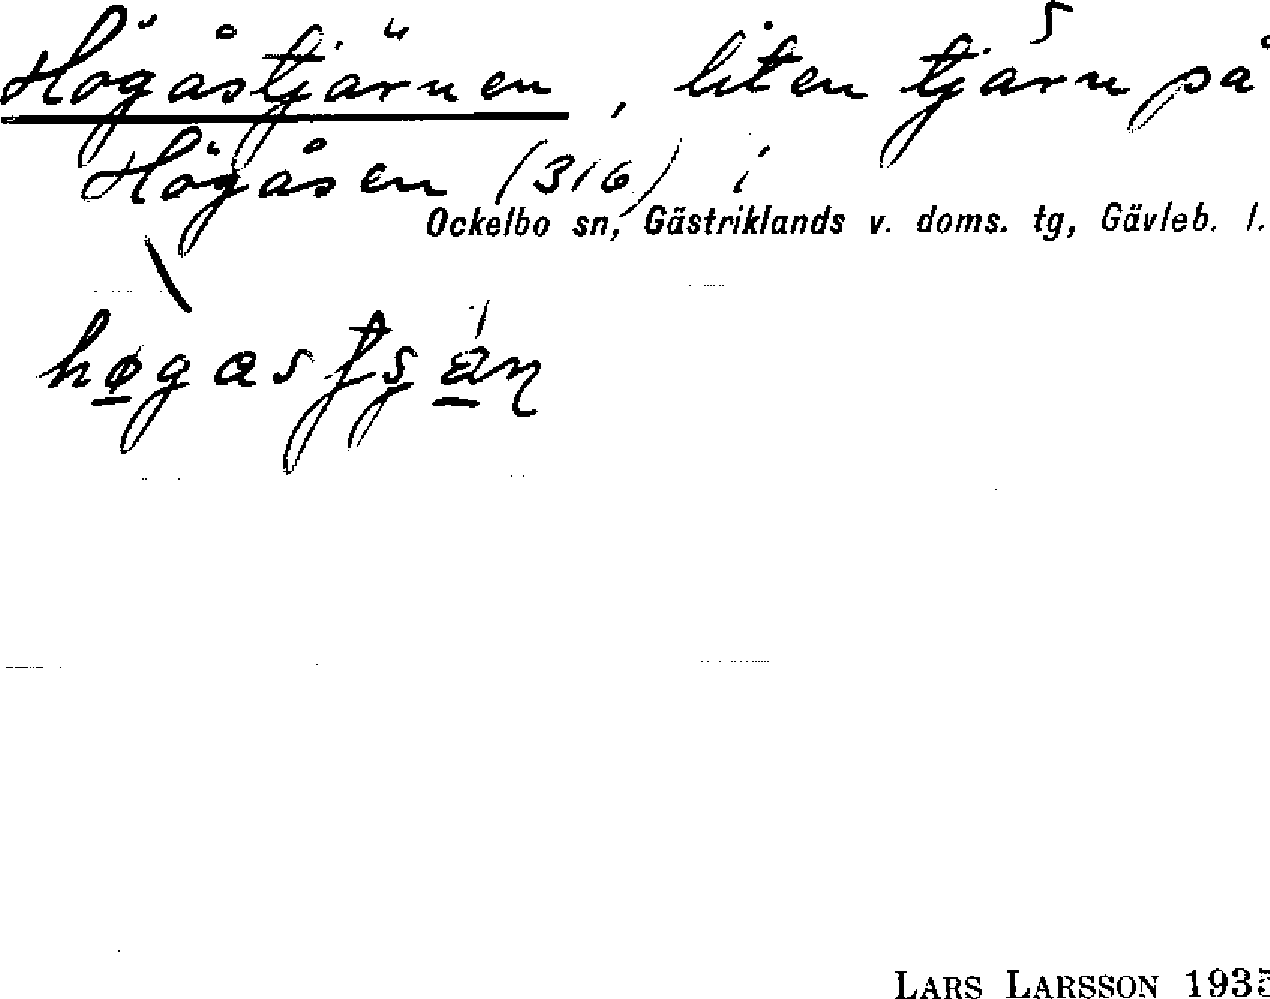 Högåstjärnen, liten tjärn på
Högåsen (316) i
Ockelbo sn, Gästriklands v. doms. tg, Gävleb. l.
LARS LARSSON 1935